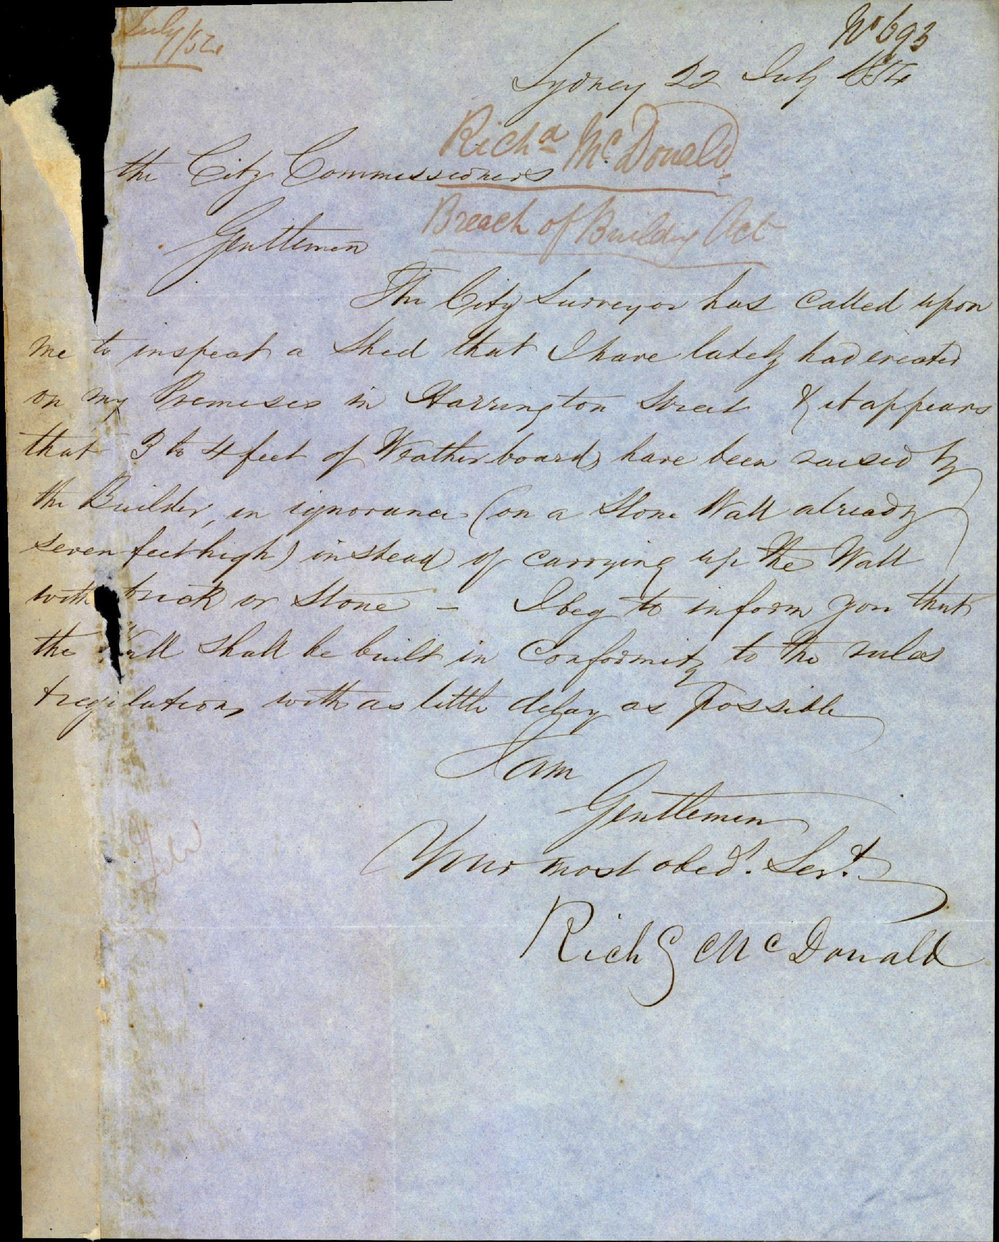 July/54
No 693
Sydney 22 July 1854
Richd McDonald
the City Commissioners
Breach of Building Act
Gentlemen
The City Surveyor has called upon
me to inspect a Shed that I have lately had erected
on my Premises in Harrington Street & it appears
that 3 to 4 feet of Weatherboards have been raised by
the Builder, in ignorance (on a Stone Wall already
seven feet high) instead of carrying up the Wall
with brick or Stone - I beg to inform you that
the Wall shall be built in Conformity to the rules
& regulations with as little delay as Possible
I am
Gentlemen
Your most obedt. Servt.
Rich McDonald